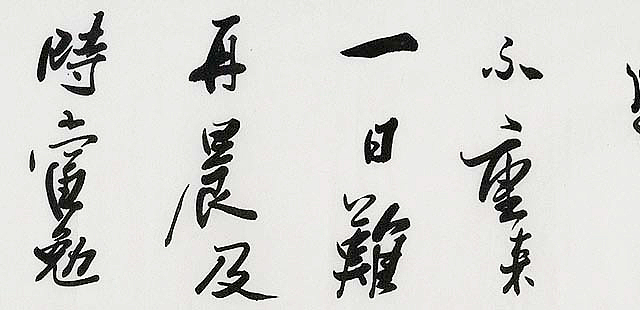 不重来
一日難
再晨及
時當勉